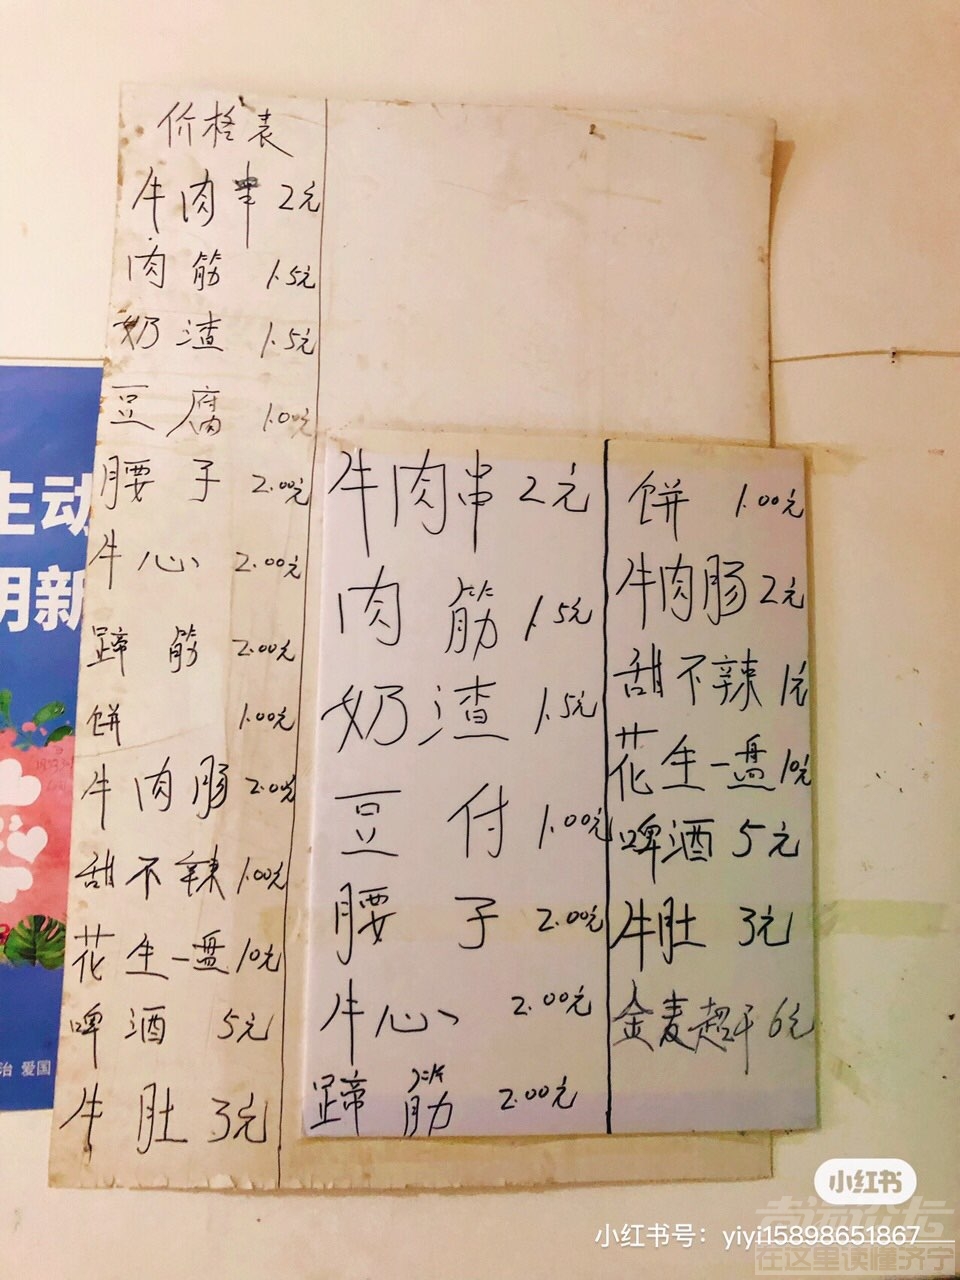 价格表
牛肉串 2元
肉筋 1.5元
奶渣 1.5元
豆腐 1.00元
腰子 2.00元
牛心 2.00元
蹄筋 2.00元
饼 1.00元
牛肉肠 2.00元
甜不辣 1.00元
花生一盘 10元
啤酒 5元
牛肚 3元
牛肉串 2元
肉筋 1.5元
奶渣 1.5元
豆付 1.00元
腰子 2.00元
牛心 2.00元
蹄筋 2.00元
饼 1.00元
牛肉肠 2元
甜不辣 1元
花生一盘 10元
啤酒 5元
牛肚 3元
金麦超干 6元
生动
明新
治 爱国
小红书
小红书号：yiyi15898651867
在这里读懂济宁